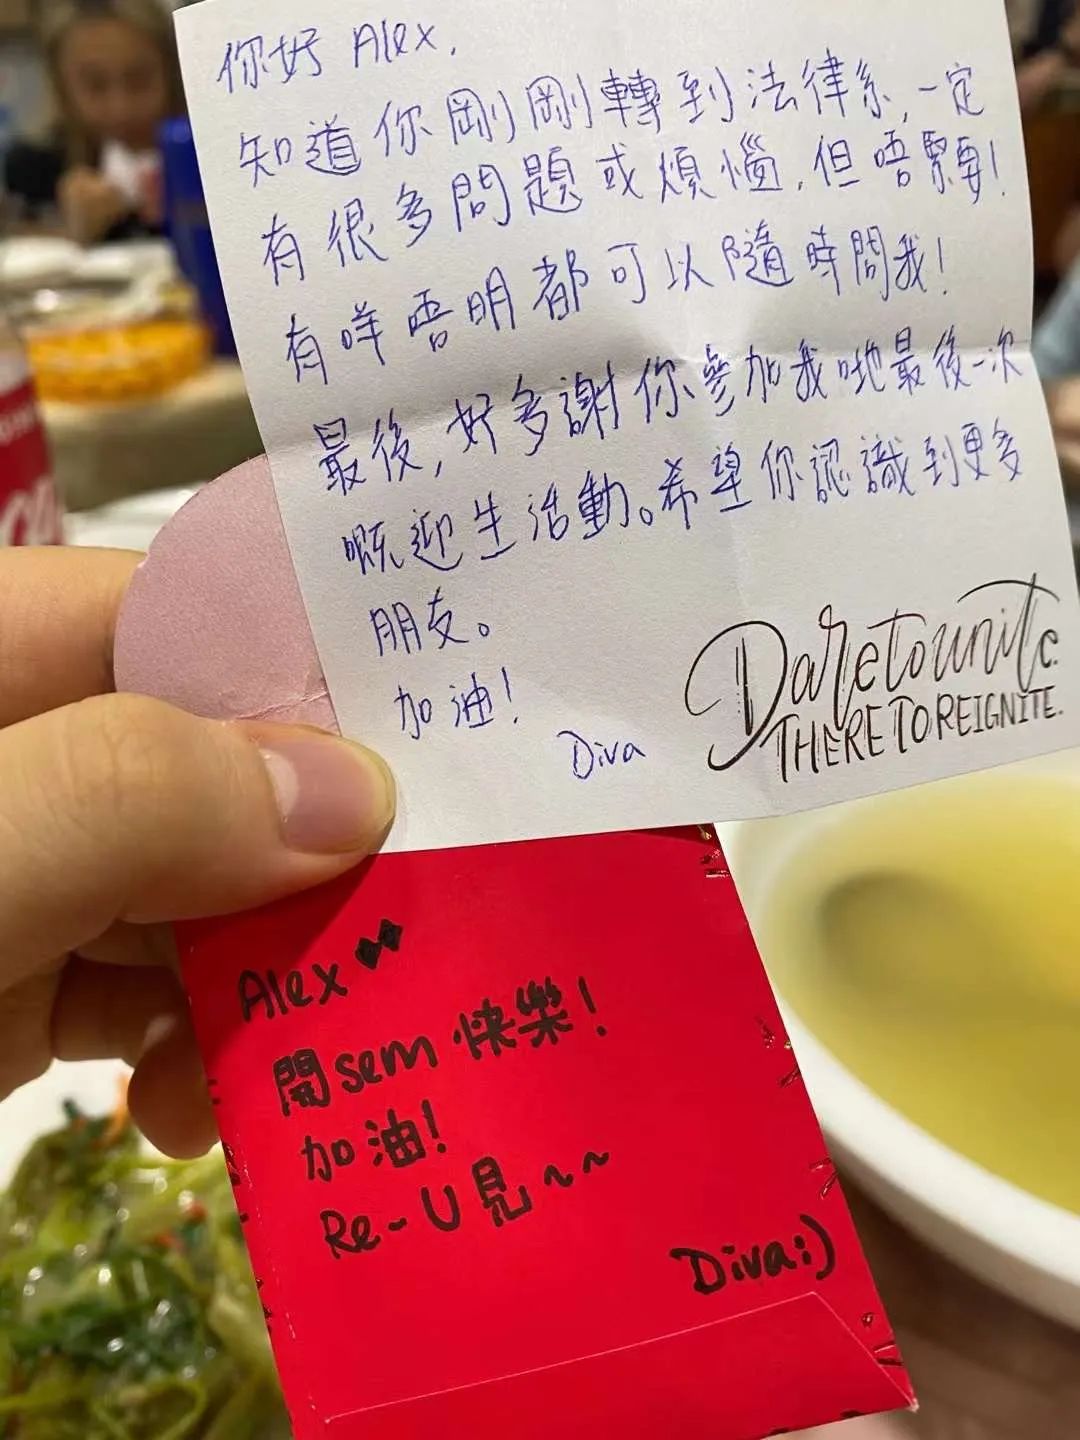 你好 Alex,
知道你剛剛轉到法律系,一定
有很多問題或煩惱,但唔緊要!
有咩唔明都可以隨時問我!
最後,好多謝你參加我哋最後一次
嘅迎生活動。希望你認識到更多
朋友。
加油!
Diva
Dare to unite.
THERE TO REIGNITE.
Alex
開sem快樂!
加油!
Re-U見~~
Diva:)